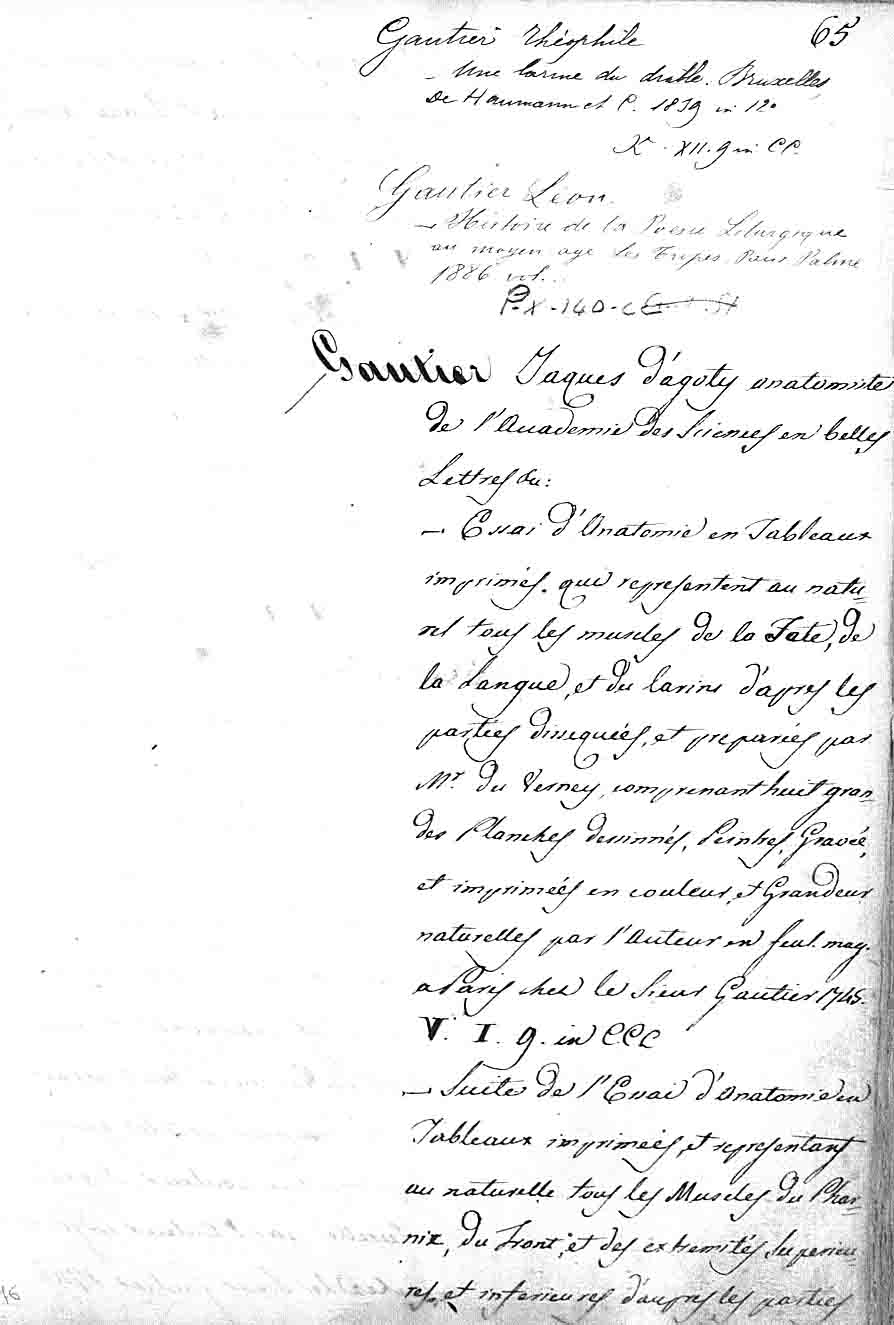 65
Gautier Théophile
- Une larme du diable. Bruxelles
De Haumann et C. 1839 in 12°
K. XII. 9 in CC.
Gautier Léon.
- Histoire de la Poesie Liturgique
au moyen age Les Tropes Paris Palme
1886 vol.
P. X - 140 - C
Gautier Jaques d'agoty anatomiste
de l'Academie des Sciences en belles
Lettres du:
- Essai d'Anatomie en Tableaux
imprimés. que representent au natu=
rel tous les muscles de la Fate, de
la Langue, et du larins d'apres les
parties dissequées, et preparées par
Mr. du Verney, comprenant huit gran=
des Planches dessinnés, Peintres, Gravée,
et imprimées en couleur, et Grandeur
naturelles par l'Auteur en feul. mag.
a Paris chez le Sieur Gautier 1745.
V. I. 9. in CCC
- Suite de l'Essai d'Anatomie en
Tableaux imprimées, et representant
au naturelle tous les Muscles du Phar=
nix, du Front, et des extremités Superieu=
res, et inferieures d'aupres les parties